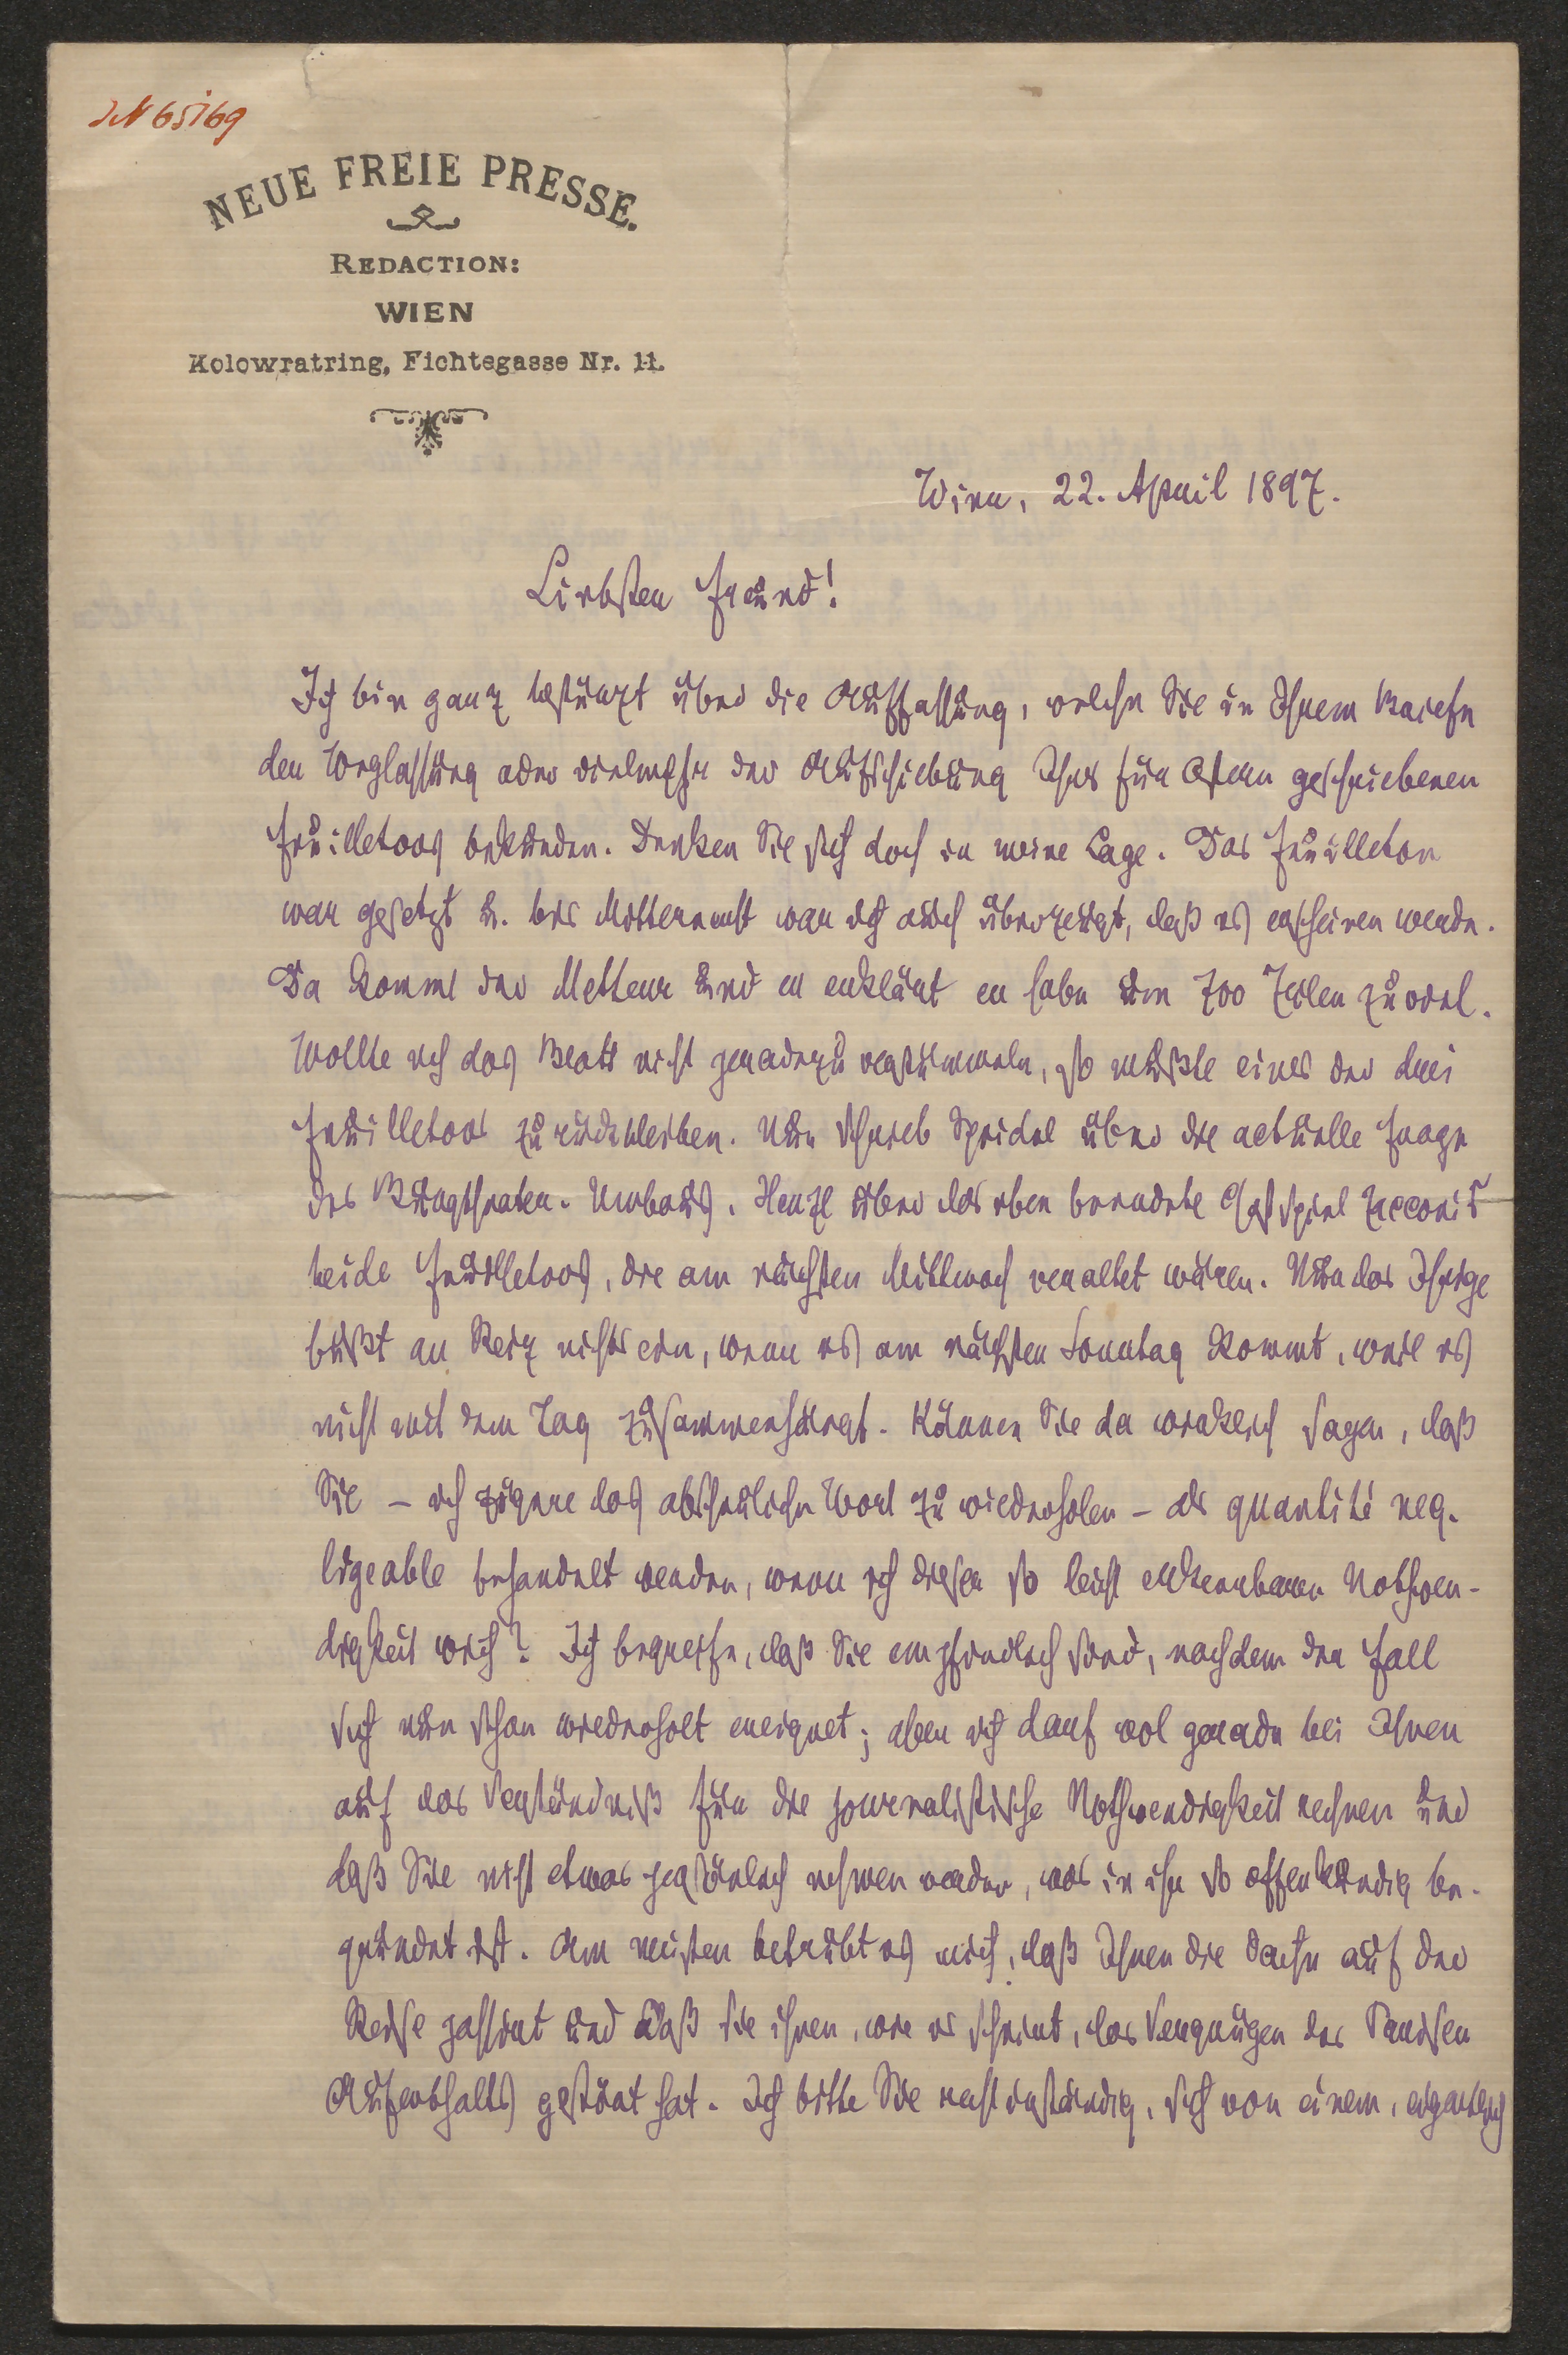 IN 65169
NEUE FREIE PRESSE.
REDACTION:
WIEN
Kolowratring, Fichtegasse Nr. 11.
Wien, 22. April 1897.
Liebster Freund!
Ich bin ganz bestürzt über die Auffassung, welche Sie in Ihrem Briefe
der Weglassung oder vielmehr der Aufschiebung Ihres für Ostern geschriebenen
Feuilletons bekunden. Denken Sie sich doch in meine Lage. Das Feuilleton
war gesetzt u. bis Mitternacht war ich auch überzeugt, daß es erscheinen werde.
Da kommt der Metteur und er erklärt er habe um 700 Zeilen zuviel.
Wollte ich das Blatt nicht geradezu verstümmeln, so mußte eines der drei
Feuilletons zurückbleiben. Nun schrieb Speidel über die actuelle Frage
des Burgtheater-Umbaus. Herzl über das eben beendete Gastspiel Zacconis
beide Feuilletons, die am nächsten Mittwoch veraltet wären. Nur das Ihrige
büßt an Reiz nichts ein, wenn es am nächsten Sonntag kommt, weil es
nicht mit dem Tag zusammenhängt. Können Sie da wirklich sagen, daß
Sie – ich zögere das abscheuliche Wort zu wiederholen – als quantité neg-
ligeable behandelt werden, wenn ich dieser so leicht erkennbaren Nothwen-
digkeit wich? Ich begreife, daß Sie empfindlich sind, nachdem der Fall
sich nun schon wiederholt ereignet; aber ich darf wol gerade bei Ihnen
auf das Verständniß für die journalistische Nothwendigkeit rechnen und
daß Sie nicht etwas persönlich nehmen werden, was in ihr so offenkundig be-
gründet ist. Am meisten betrübt es mich, daß Ihnen die Sache auf der
Reise passirt und daß sie ihnen, wie es scheint, das Vergnügen des Pariser
Aufenthalts gestört hat. Ich bitte Sie recht inständig, sich von einem, eigentlich